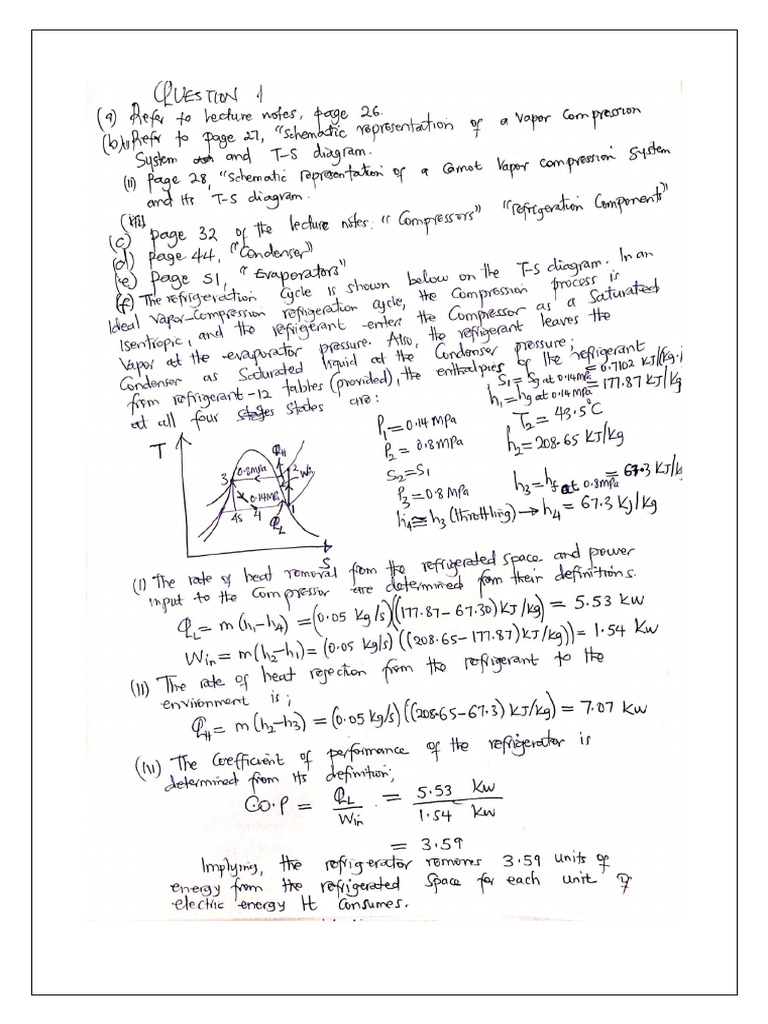 QUESTION 1
(a) Refer to Lecture notes, page 26.
(b)(i) Refer to page 27, "Schematic representation of a vapor compression
System and T-S diagram.
(ii) page 28, "Schematic representation of a Carnot vapor compression System
and its T-S diagram.
(c) page 32 of the lecture notes. "Compressors" "Refrigeration Components"
(d) page 44, "Condenser"
(e) page 51, "Evaporators"
(f) The refrigeration Cycle is shown below on the T-S diagram. In an
Ideal Vapor-Compression refrigeration cycle, the Compression process is
Isentropic, and the refrigerant enters the Compressor as a Saturated
Vapor at the evaporator pressure. Also, the refrigerant leaves the
Condenser as Saturated liquid at the Condenser pressure;
from refrigerant-12 tables (provided), the enthalpies of the refrigerant
at all four states are:
P1 = 0.14 MPa
S1 = Sg at 0.14 MPa = 0.7102 KJ/(Kg.
h1 = hg at 0.14 MPa = 177.87 KJ/Kg
P2 = 0.8 MPa
S2 = S1
T2 = 43.5°C
h2 = 208.65 KJ/Kg
P3 = 0.8 MPa
h3 = hf at 0.8 MPa = 67.3 KJ/k
h4 ≅ h3 (throttling) → h4 = 67.3 KJ/Kg
T
QH
3
0.8MPa
2
Win
0.14MPa
4s
4
1
QL
S
(I) The rate of heat removal from the refrigerated space and power
input to the Compressor are determined from their definitions.
QL = m(h1-h4) = (0.05 Kg/s)((177.87 - 67.30) KJ/kg) = 5.53 KW
Win = m(h2-h1) = (0.05 Kg/s)((208.65-177.87) KJ/kg)) = 1.54 KW
(II) The rate of heat rejection from the refrigerant to the
environment is;
QH = m(h2-h3) = (0.05 Kg/s)((208.65-67.3) KJ/kg) = 7.07 KW
(III) The Coefficient of performance of the refrigerator is
determined from its definition;
C.O.P = QL/Win = 5.53 KW/1.54 KW
= 3.59
Implying, the refrigerator removes 3.59 units of
energy from the refrigerated Space for each unit of
electric energy it Consumes.